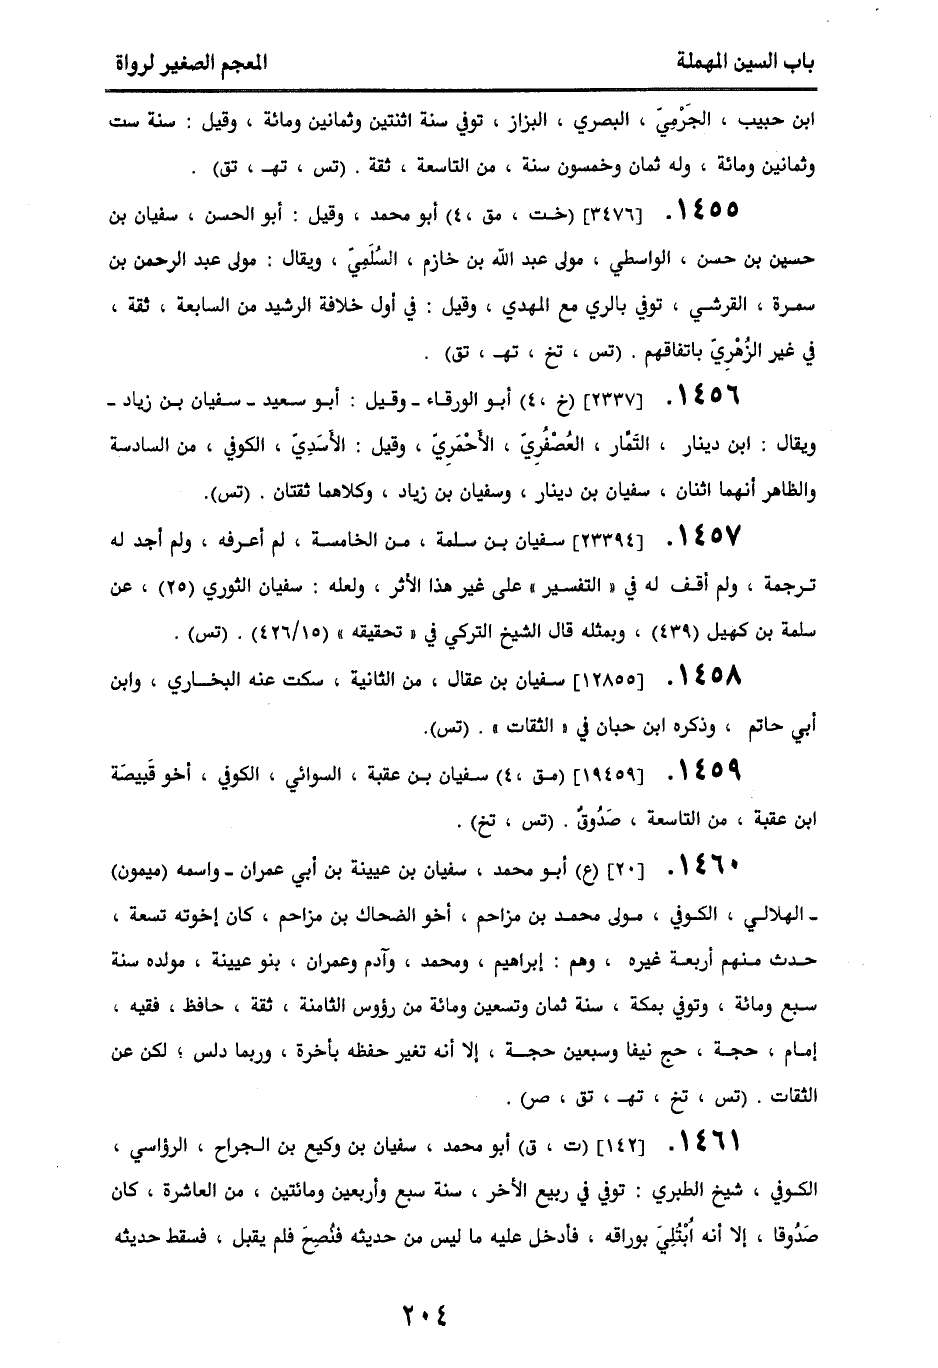 باب السين المهملة
المعجم الصغير لرواة
ابن حبيب ، الجَرْمِيّ ، البصري ، البزاز ، توفي سنة اثنتين وثمانين ومائة ، وقيل : سنة ست
وثمانين ومائة ، وله ثمان وخمسون سنة ، من التاسعة ، ثقة . (تس ، تهـ ، تق) .
١٤٥٥. [٣٤٧٦] (خت ، مق ،٤) أبو محمد ، وقيل : أبو الحسن ، سفيان بن
حسين بن حسن ، الواسطي ، مولى عبد الله بن خازم ، السُلَمِيّ ، ويقال : مولى عبد الرحمن بن
سمرة ، القرشي ، توفي بالري مع المهدي ، وقيل : في أول خلافة الرشيد من السابعة ، ثقة ،
في غير الزُهْرِيّ باتفاقهم . (تس ، تخ ، تهـ ، تق) .
١٤٥٦. [٢٣٣٧] (خ ،٤) أبو الورقاء ـ وقيل : أبو سعيد ـ سفيان بن زياد ـ
ويقال : ابن دينار ، التَمَّار ، العُصْفُرِيّ ، الأَحْمَرِيّ ، وقيل : الأَسَدِيّ ، الكوفي ، من السادسة
والظاهر أنهما اثنان ، سفيان بن دينار ، وسفيان بن زياد ، وكلاهما ثقتان . (تس).
١٤٥٧. [٢٣٣٩٤] سفيان بن سلمة ، من الخامسة ، لم أعرفه ، ولم أجد له
ترجمة ، ولم أقف له في « التفسير » على غير هذا الأثر ، ولعله : سفيان الثوري (٢٥) ، عن
سلمة بن كهيل (٤٣٩) ، وبمثله قال الشيخ التركي في « تحقيقه » (٤٢٦/١٥) . (تس) .
١٤٥٨. [١٢٨٥٥] سفيان بن عقال ، من الثانية ، سكت عنه البخاري ، وابن
أبي حاتم ، وذكره ابن حبان في « الثقات » . (تس).
١٤٥٩. [١٩٤٥٩] (مق ،٤) سفيان بن عقبة ، السوائي ، الكوفي ، أخو قَبِيصَة
ابن عقبة ، من التاسعة ، صَدُوقٌ . (تس ، تخ) .
١٤٦٠. [٢٠] (ع) أبو محمد ، سفيان بن عيينة بن أبي عمران ـ واسمه (ميمون)
ـ الهلالي ، الكوفي ، مولى محمد بن مزاحم ، أخو الضحاك بن مزاحم ، كان إخوته تسعة ،
حدث منهم أربعة غيره ، وهم : إبراهيم ، ومحمد ، وآدم وعمران ، بنو عيينة ، مولده سنة
سبع ومائة ، وتوفي بمكة ، سنة ثمان وتسعين ومائة من رؤوس الثامنة ، ثقة ، حافظ ، فقيه ،
إمام ، حجة ، حج نيفا وسبعين حجة ، إلا أنه تغير حفظه بأخرة ، وربما دلس ؛ لكن عن
الثقات . (تس ، تخ ، تهـ ، تق ، صر) .
١٤٦١. [١٤٢] (ت ، ق) أبو محمد ، سفيان بن وكيع بن الجراح ، الرؤاسي ،
الكوفي ، شيخ الطبري : توفي في ربيع الأخر ، سنة سبع وأربعين ومائتين ، من العاشرة ، كان
صَدُوقا ، إلا أنه أُبْتُلِيَ بوراقه ، فأدخل عليه ما ليس من حديثه فَنُصِحَ فلم يقبل ، فسقط حديثه
٢٠٤